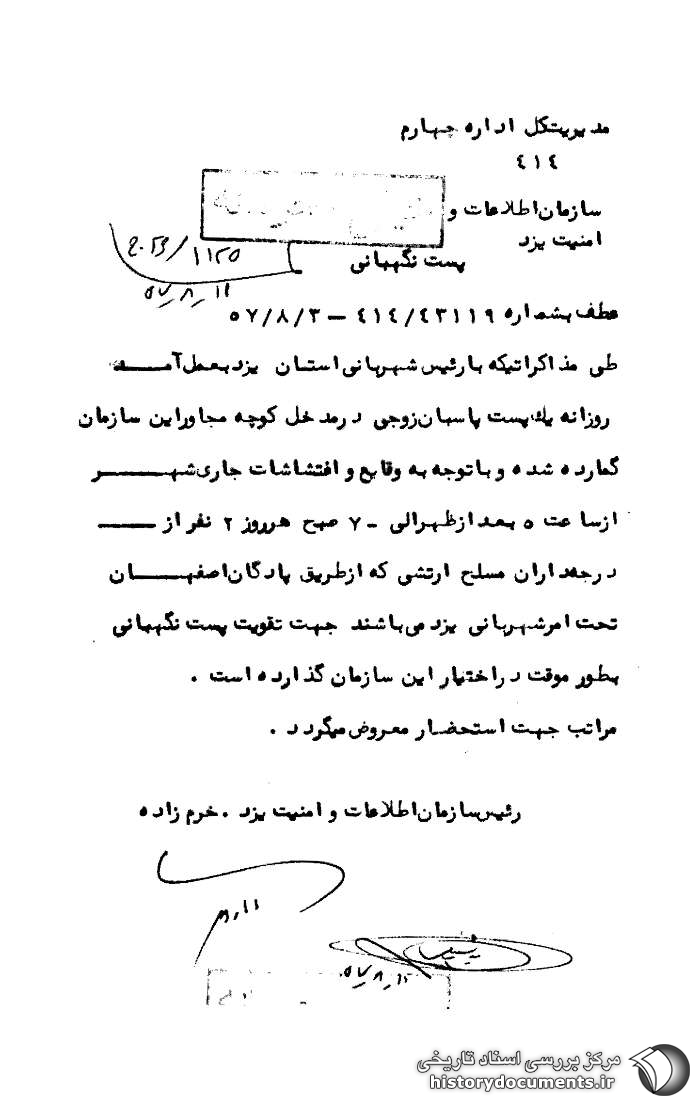 مدیریتکل اداره چهارم
۴۱۴
سازمان اطلاعات و
امنیت یزد
پست نگهبانی
۵۷-۸-۱۱
عطف بشماره ۴۱۴/۴۳۱۱۹ – ۵۷/۸/۳
طی مذاکراتیکه با رئیس شهربانی استان یزد بعمل آمـــد
روزانه یک پست پاسبان زوجی در مدخل کوچه مجاور این سازمان
گمارده شده و با توجه به وقایع و اغتشاشات جاری شهــــر
از ساعت ۵ بعد از ظهر الی - ۷ صبح هر روز ۲ نفر از ــــ
درجه‌داران مسلح ارتشی که از طریق پادگان اصفهـــان
تحت امر شهربانی یزد می‌باشند جهت تقویت پست نگهبانی
بطور موقت در اختیار این سازمان گذارده است .
مراتب جهت استحضار معروض میگردد .
رئیس سازمان اطلاعات و امنیت یزد . خرم زاده
مرکز بررسی اسناد تاریخی
historydocuments.ir